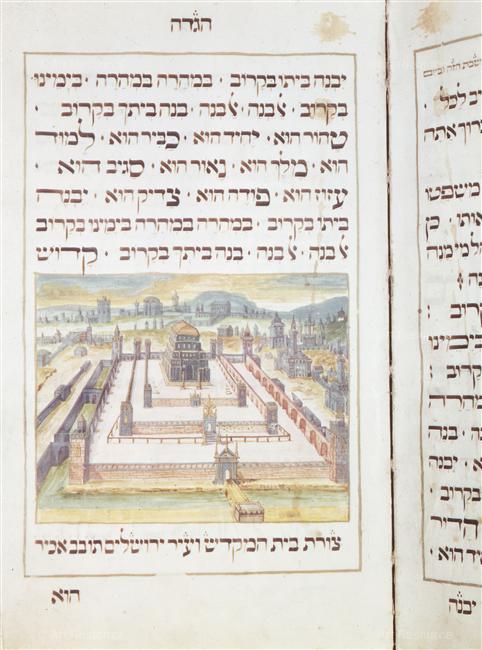 לכל ·
אתה
משפטו
כן
קרוב :
בימינו
בקרוב :
מהרה
· בנה
יבנה
בקרוב ·
הדור
הוא ·
יבנה
הגדה
יבנה ביתו בקרוב · במהרה במהרה · בימינו
בקרוב · ﭏ בנה · ﭏ בנה · בנה ביתך בקרוב ·
טהור הוא · יחיד הוא · כביר הוא · למוד
הוא · מלך הוא · נאור הוא · סגיב הוא ·
עזוז הוא · פודה הוא · צדיק הוא · יבנה
ביתו בקרוב · במהרה במהרה בימינו בקרוב
ﭏ בנה · ﭏ בנה · בנה ביתך בקרוב · קדוש
צורת בית המקדש ועיר ירושלים תובב אכיר
הוא
Art Resource